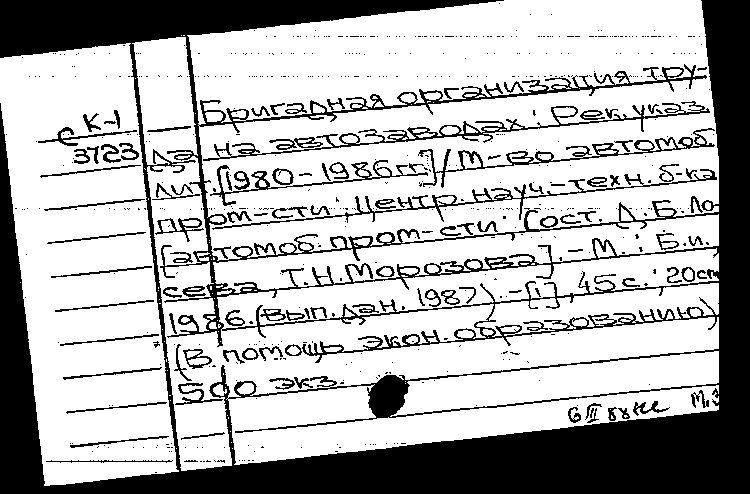 Бригадная организация тру-
с К-1
3723
да на автозаводах : Рек. указ.
лит. [1980-1986 гг.] / М-во автомоб.
пром-сти ; Центр. науч.-техн. б-ка
[автомоб. пром-сти ; Сост. Д. Б. Ло-
сева, Т.Н. Морозова]. - М. : Б.и.,
1986. (вып. дан. 1987). - [1], 45 с. ; 20 см
(В помощь экон. образованию)
500 экз.
6 III 88